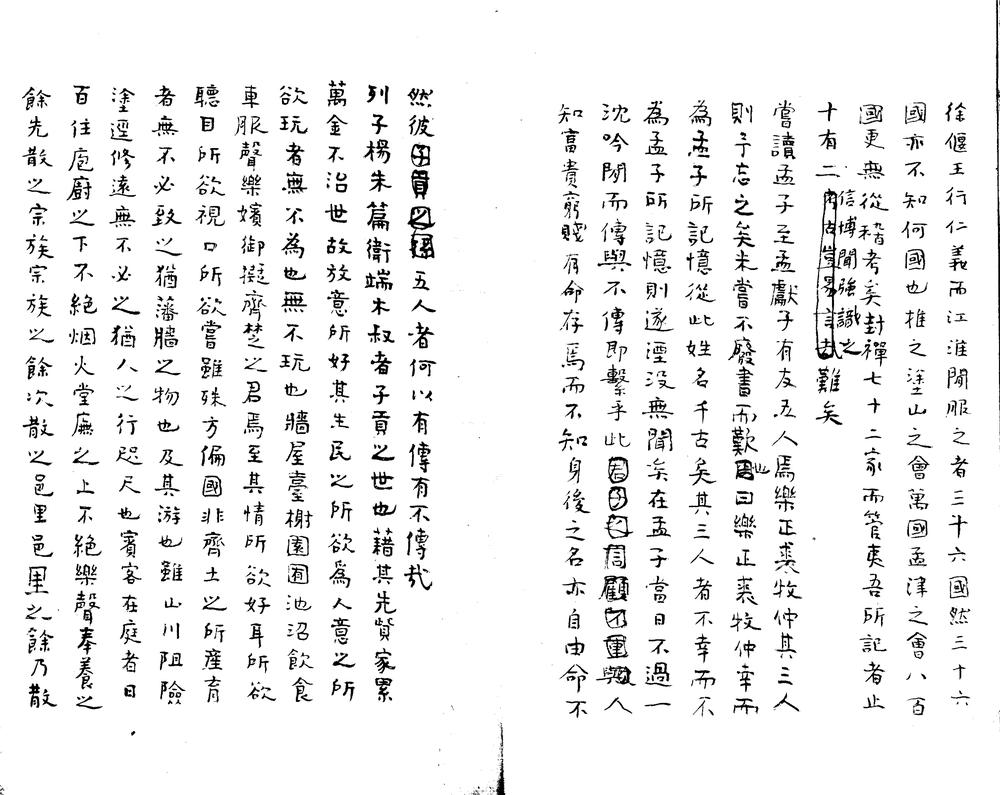 徐偃王行仁義而江淮間服之者三十六國然三十六
國亦不知何國也推之塗山之會萬國孟津之會八百
國更無從稽考矣封禪七十二家而管夷吾所記者止
十有二難矣
信博聞強識之
嘗讀孟子至孟獻子有友五人焉樂正裘牧仲其三人
則予忘之矣未嘗不廢書而歎也曰樂正裘牧仲幸而
為孟子所記憶從此姓名千古矣其三人者不幸而不
為孟子所記憶則遂湮没無聞矣在孟子當日不過一
沈吟間而傳與不傳即繫乎此人
知富貴窮賤有命存焉而不知身後之名亦自由命不
然彼五人者何以有傳有不傳哉
列子楊朱篇衛端木叔者子貢之世也藉其先貲家累
萬金不治世故放意所好其生民之所欲為人意之所
欲玩者無不為也無不玩也牆屋臺榭園囿池沼飲食
車服聲樂嬪御擬齊楚之君焉至其情所欲好耳所欲
聽目所欲視口所欲嘗雖殊方偏國非齊土之所產育
者無不必致之猶藩牆之物也及其游也雖山川阻險
塗逕修遠無不必之猶人之行咫尺也賓客在庭者日
百住庖廚之下不絕烟火堂廡之上不絕樂聲奉養之
餘先散之宗族宗族之餘次散之邑里邑里之餘乃散